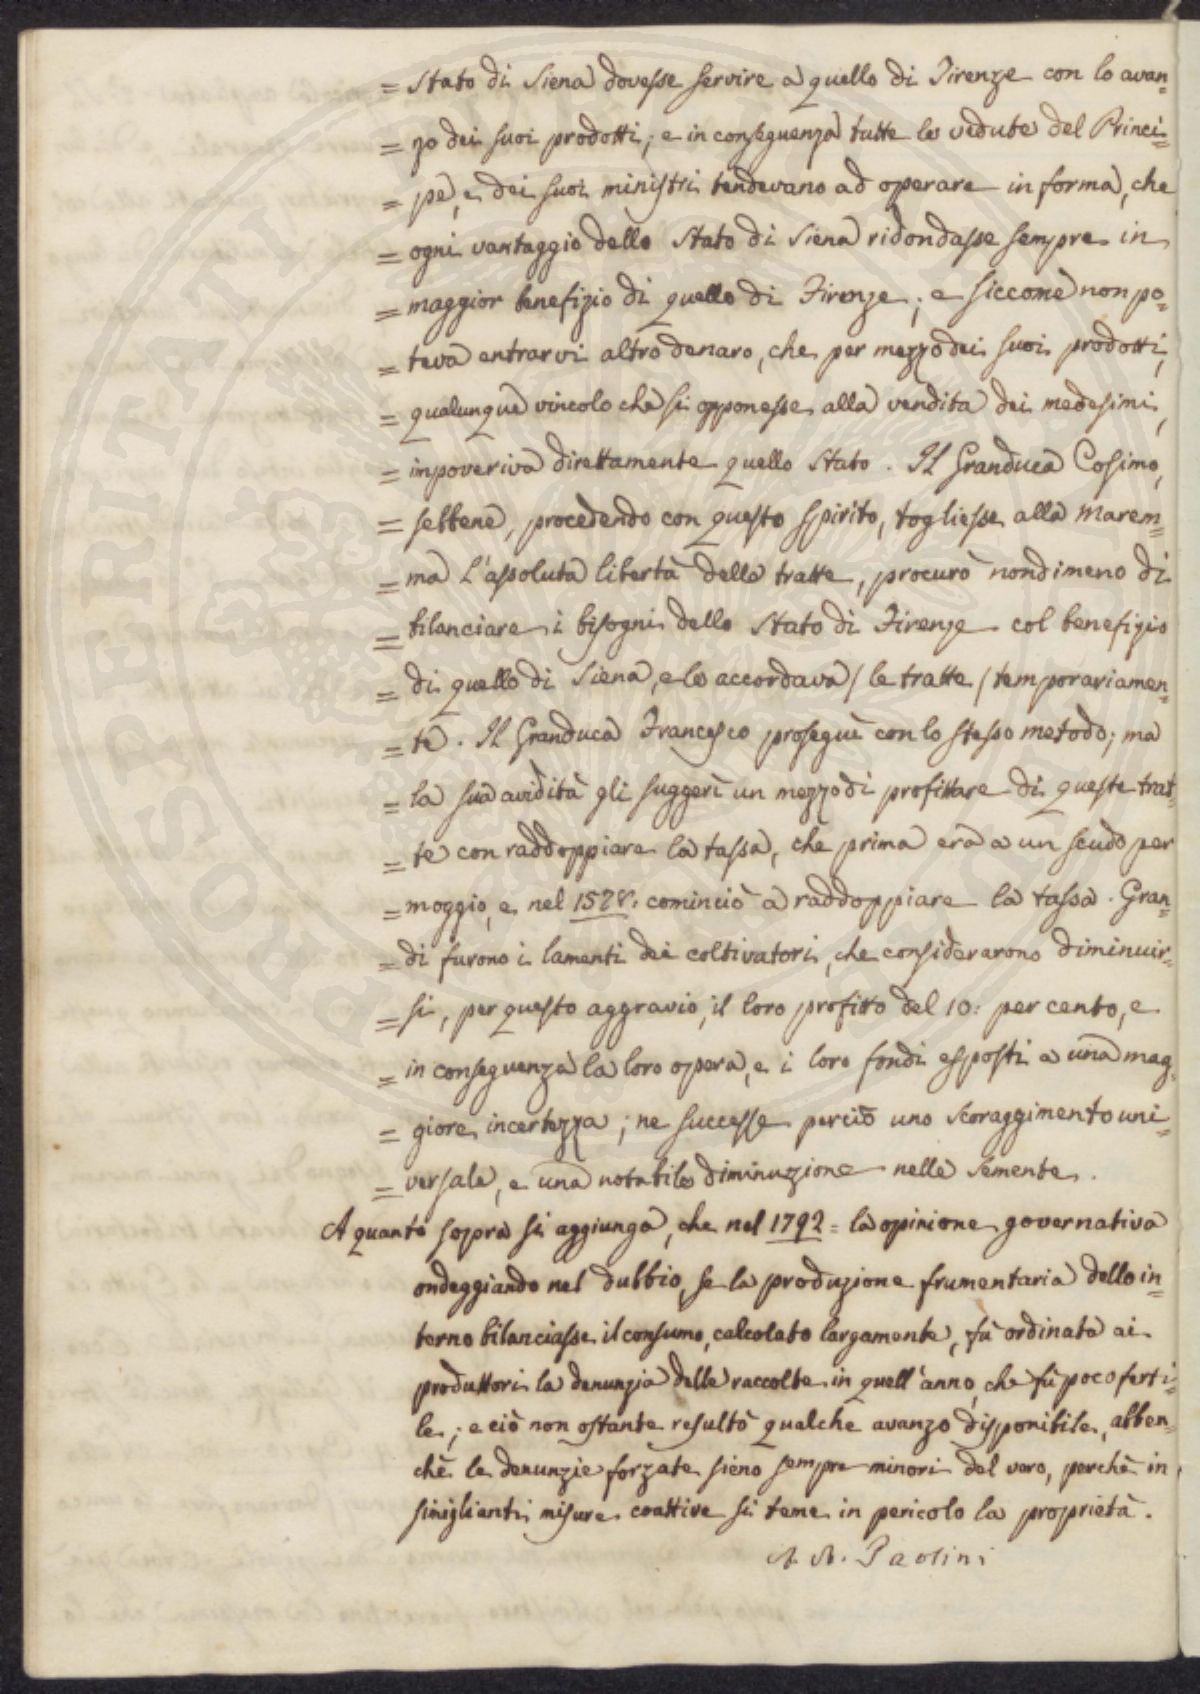 = Stato di Siena dovesse servire a quello di Firenze con lo avan=
= zo dei suoi prodotti; e in conseguenza tutte le vedute del Princi=
= pe, e dei suoi ministri tendevano ad operare in forma, che
= ogni vantaggio dello Stato di Siena ridondasse sempre in
= maggior benefizio di quello di Firenze; e siccome non po=
= teva entrarvi altro denaro, che per mezzo dei suoi prodotti,
= qualunque vincolo che si opponesse alla vendita dei medesimi,
= impoveriva direttamente quello Stato. Il Granduca Cosimo,
= sebbene, procedendo con questo spirito, togliesse alla Marem=
= ma l'assoluta libertà delle tratte, procurò nondimeno di
= bilanciare i bisogni dello Stato di Firenze col benefizio
= di quello di Siena, e le accordava / le tratte / temporariamen=
= te. Il Granduca Francesco proseguì con lo stesso metodo; ma
= la sua avidità gli suggerì un mezzo di profittare di queste trat=
= te con raddoppiare la tassa, che prima era a un scudo per
= moggio, e nel 1578. cominciò a raddoppiare la tassa. Gran=
= di furono i lamenti dei coltivatori, che considerarono diminuir=
= si, per questo aggravio, il loro profitto del 10: per cento, e
= in conseguenza la loro opera, e i loro fondi esposti a una mag=
= giore incertezza; ne successe perciò uno scoraggimento uni=
= versale, e una notabile diminuzione nelle semente.
A quanto sopra si aggiunga, che nel 1792 = la opinione governativa
ondeggiando nel dubbio, se la produzione frumentaria dello in=
terno bilanciasse il consumo, calcolato largamente, fù ordinata ai
produttori la denunzia delle raccolte in quell'anno, che fù poco ferti=
le; e ciò non ostante resultò qualche avanzo disponibile, abben=
chè le denunzie forzate sieno sempre minori del vero, perchè in
simiglianti misure coattive si teme in pericolo la proprietà.
A. A. Paolini
PROSPERITATI